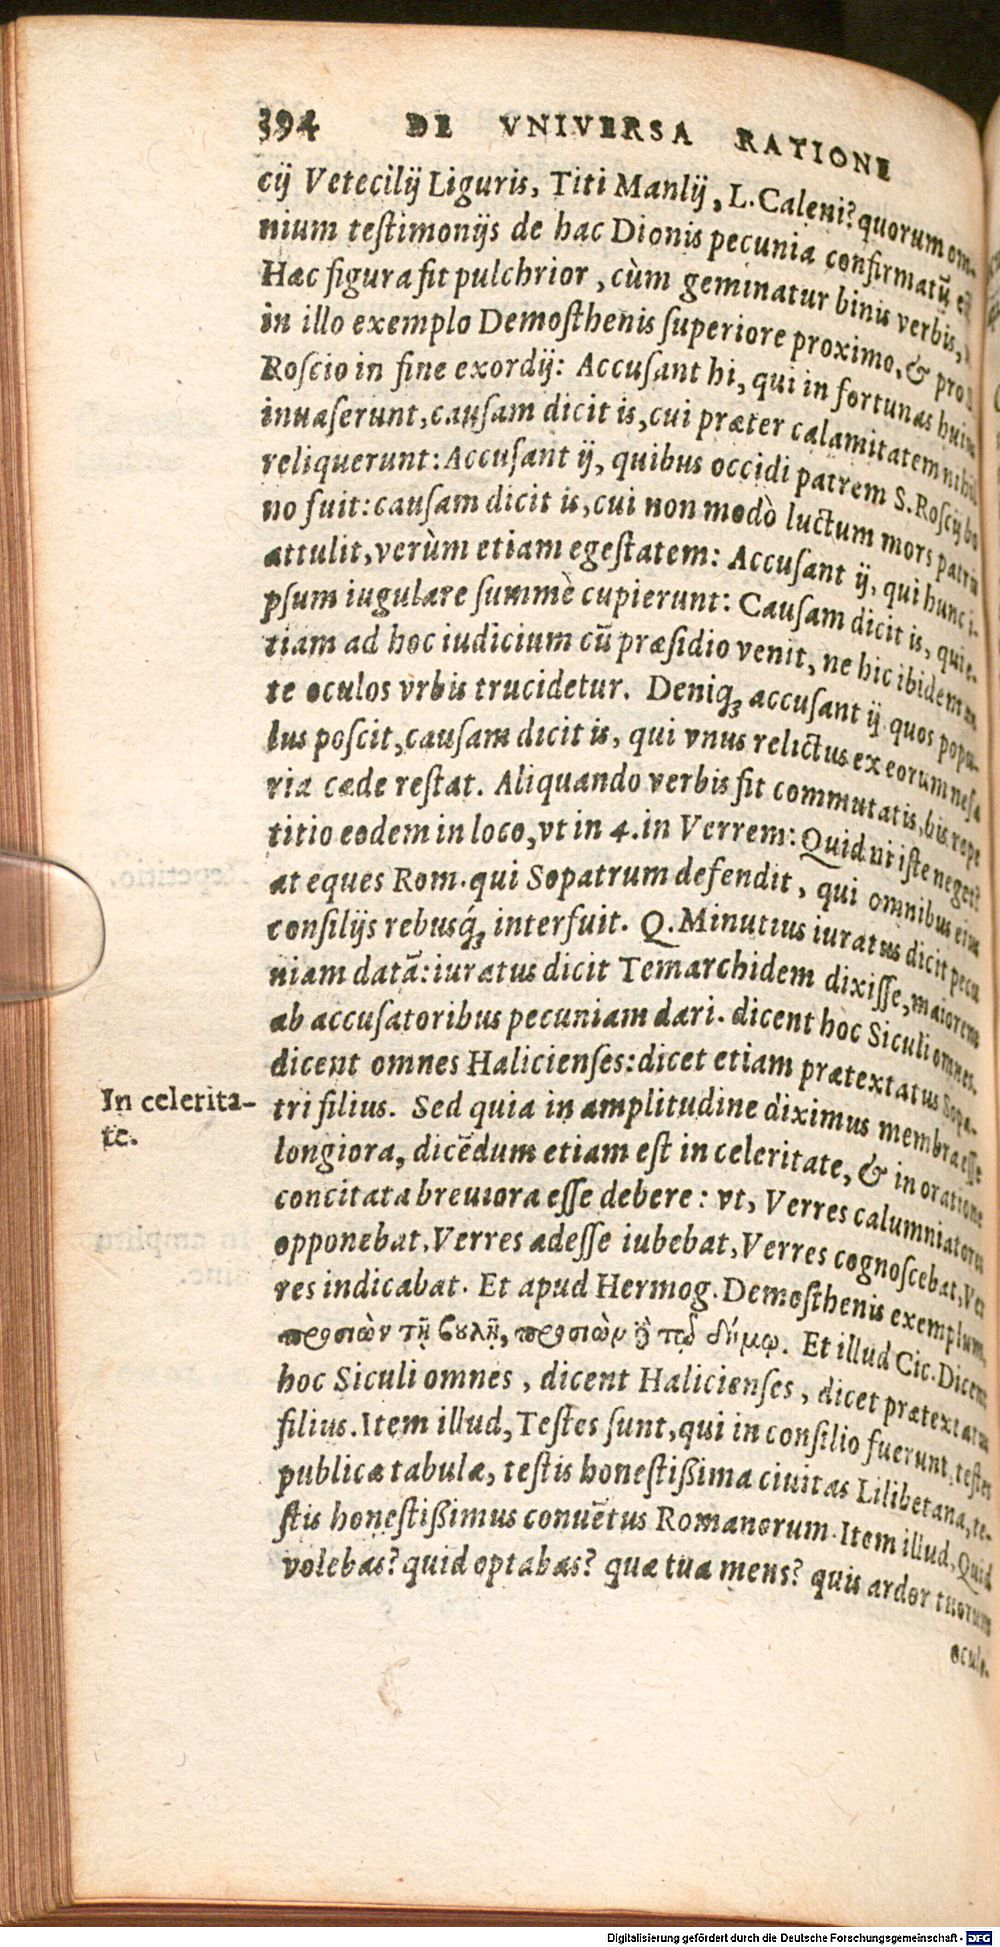 394 DE VNIVERSA RATIONE
cij Vetecilij Liguris, Titi Manlij, L. Caleni? quorum om-
nium teſtimonijs de hac Dionis pecunia confirmatũ eſt
Hæc figura fit pulchrior, cùm geminatur binis verbis,
in illo exemplo Demoſthenis ſuperiore proximo, & pro S.
Roſcio in fine exordij: Accuſant hi, qui in fortunas huius
inuaſerunt, cauſam dicit is, cui præter calamitatem nihil
reliquerunt: Accuſant ij, quibus occidi patrem S. Roſcij bo
no fuit: cauſam dicit is, cui non modò luctum mors patris
attulit, verùm etiam egeſtatem: Accuſant ij, qui hunc i-
pſum iugulare ſummè cupierunt: Cauſam dicit is, qui e-
tiam ad hoc iudicium cũ præſidio venit, ne hic ibidem an
te oculos vrbis trucidetur. Deniq; accuſant ij quos popu-
lus poſcit, cauſam dicit is, qui vnus relictus ex eorum nefa
ria cæde reſtat. Aliquando verbis fit commutatis, bis repe
titio eodem in loco, vt in 4. in Verrem: Quid ut iſte neget?
at eques Rom. qui Sopatrum defendit, qui omnibus eius
conſilijs rebusq́; interfuit. Q. Minutius iuratus dicit pecu
niam datã: iuratus dicit Temarchidem dixiſſe, maiorem
ab accuſatoribus pecuniam dari. dicent hoc Siculi omnes.
dicent omnes Halicienſes: dicet etiam prætextatus Sopa-
In celerita-
te.
tri filius. Sed quia in amplitudine diximus membra eſſe
longiora, dicẽdum etiam eſt in celeritate, & in oratione
concitata breuiora eſſe debere: vt, Verres calumniatores
opponebat, Verres adeſſe iubebat, Verres cognoſcebat, Ver
res indicabat. Et apud Hermog. Demoſthenis exemplum,
προσιὼν τῇ βουλῇ, προσιὼν δὲ τῷ δήμῳ. Et illud Cic. Dicent
hoc Siculi omnes, dicent Halicienſes, dicet prætextatus
filius. Item illud, Teſtes ſunt, qui in conſilio fuerunt, teſtes
publicæ tabulæ, teſtis honeſtißima ciuitas Lilibetana, te-
ſtis honeſtißimus conuẽtus Romanorum. Item illud, Quid
volebas? quid optabas? quæ tua mens? quis ardor tuorum
oculo-
Digitalisierung gefördert durch die Deutsche Forschungsgemeinschaft - DFG